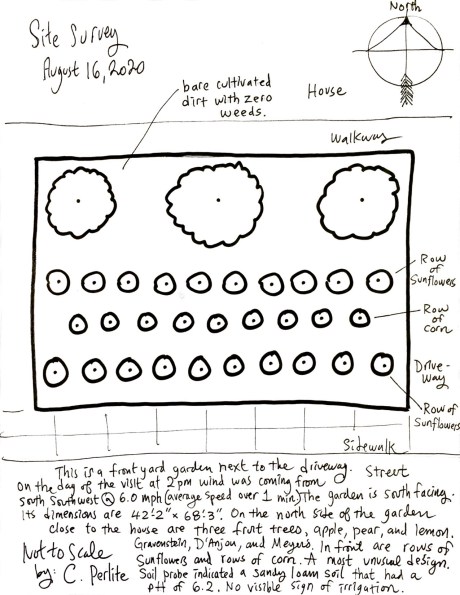 Site Survey
August 16, 2020
North
bare cultivated
dirt with zero
weeds.
House
Walkway
Row
of
Sunflowers
Row
of
corn
Drive-
way
Row of
Sunflowers
Sidewalk
Street
This is a front yard garden next to the driveway.
On the day of the visit at 2 pm wind was coming from
South Southwest @ 6.0 mph (average speed over 1 min.) The garden is south facing.
Its dimensions are 42'2" x 68'3". On the north side of the garden
close to the house are three fruit trees, apple, pear, and lemon.
Gravenstein, D'Anjou, and Meyers. In front are rows of
Sunflowers and rows of corn. A most unusual design.
Soil probe indicated a sandy loam soil that had a
pH of 6.2. No visible sign of irrigation.
Not to Scale
by: C. Perlite